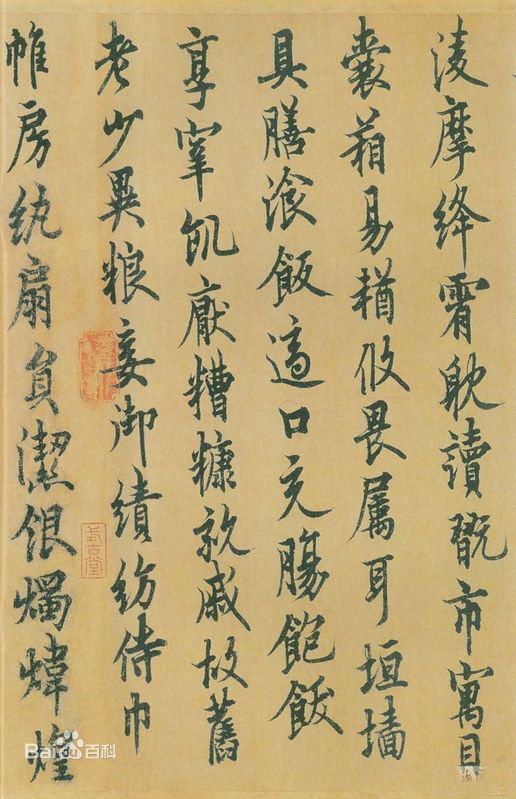 淩摩絳霄耽讀翫市寓目
囊箱易輶攸畏屬耳垣墻
具膳飡飯適口充腸飽飫
享宰飢厭糟糠親戚故舊
老少異粮妾御績紡侍巾
帷房紈扇員潔銀燭煒煌
式古堂
Baidu百科